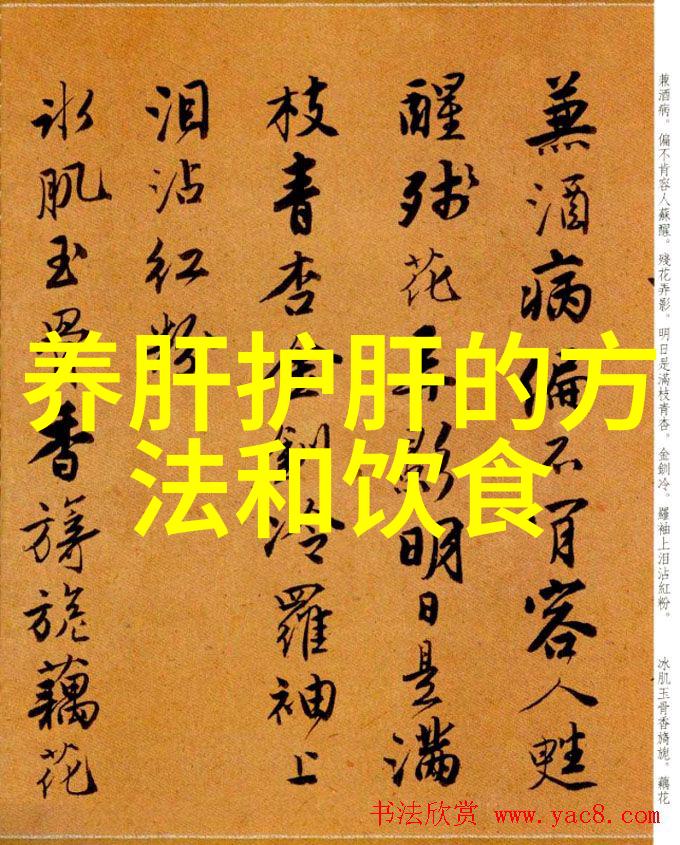 蒹酒病偏不肯容人甦
醒残花弄影明日是满
枝青杏金釧冷羅袖上
泪沾红粉
冰肌玉骨香旖旎藕花
兼酒病。偏不肯容人蘇醒。殘花弄影。明日是滿枝青杏。金釧冷。羅袖上泪沾紅粉。
冰肌玉骨香旖旎。藕花
养肝护肝的方
法和饮食
书法欣赏 www.yac8.com